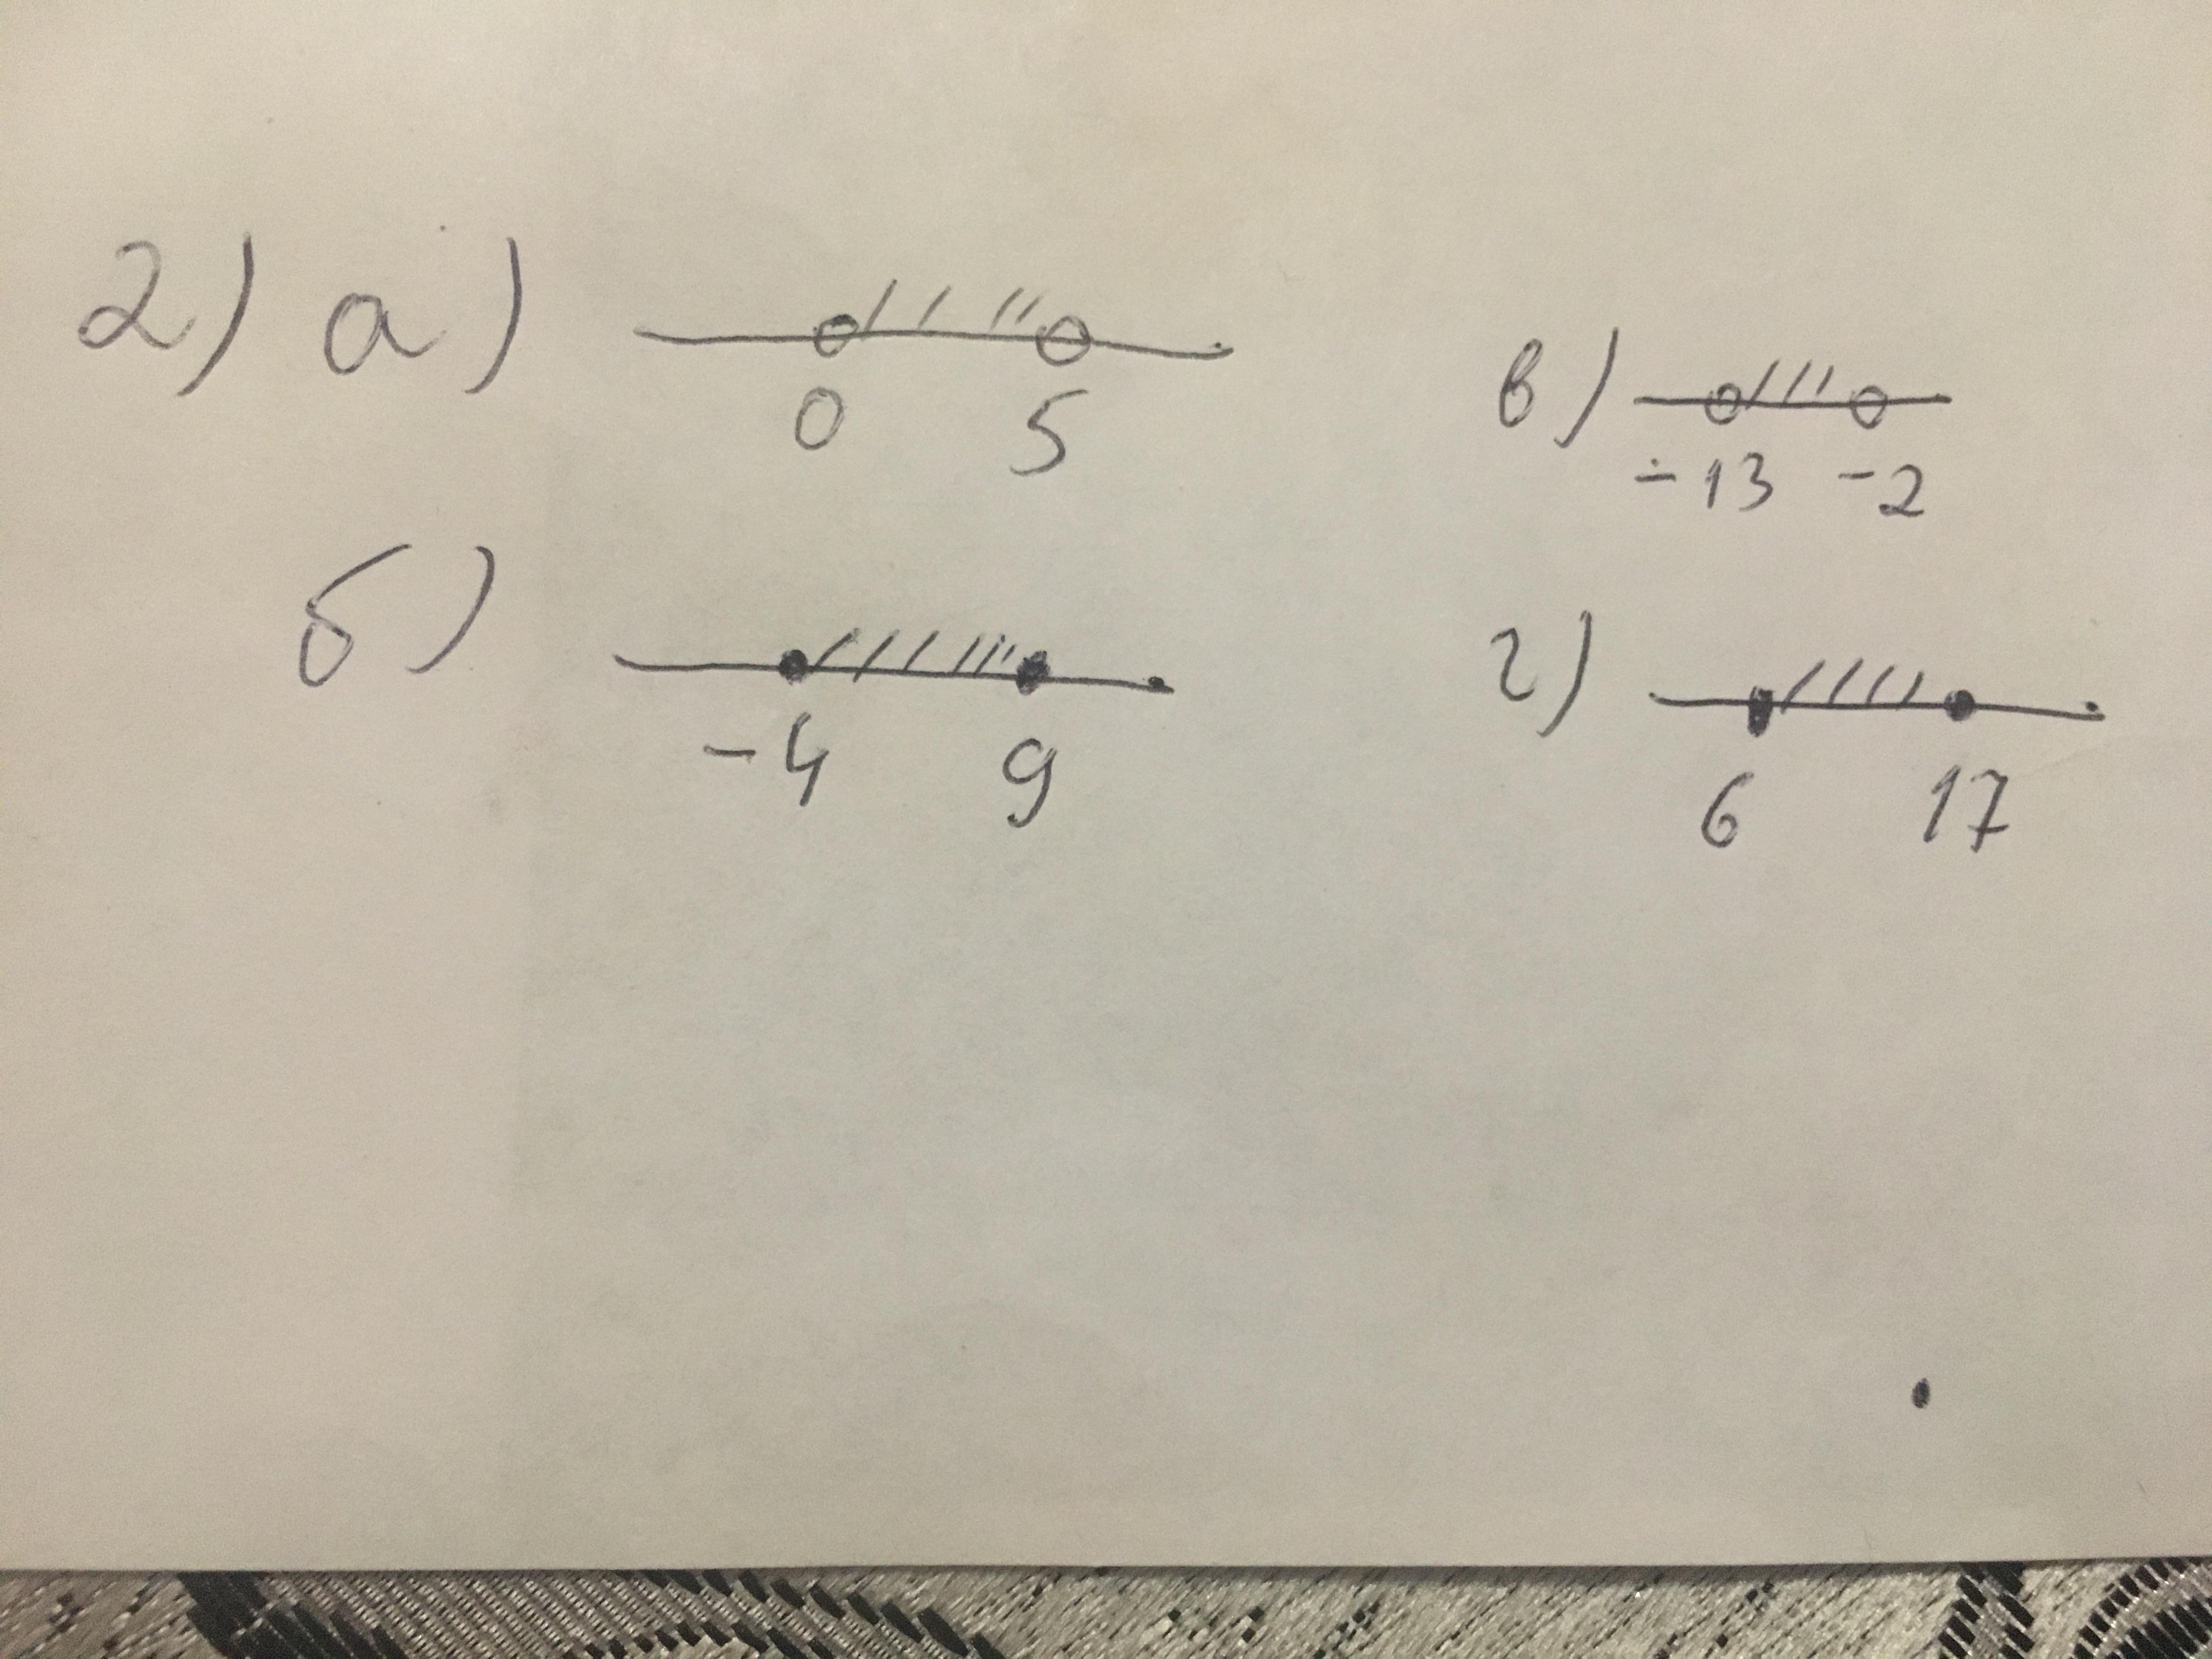 2) а)
0 5
б)
-4 9
в)
-13 -2
г)
6 17